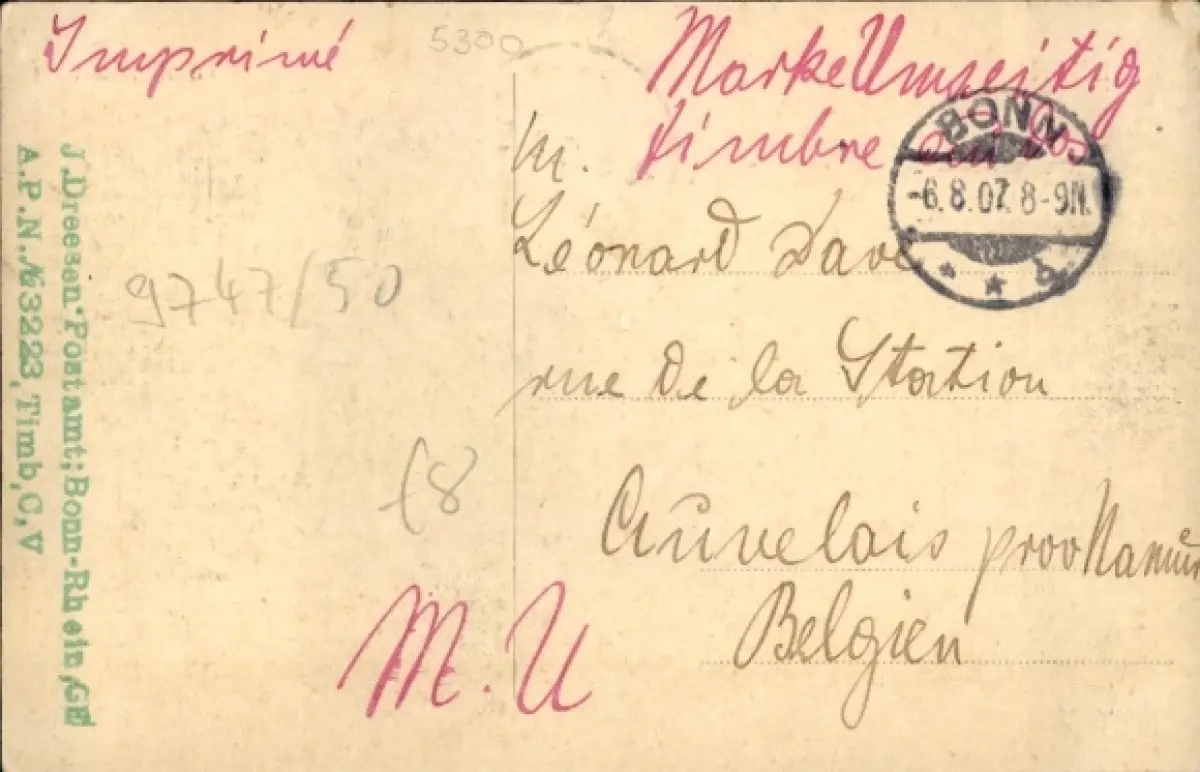 Imprimé
5300
Marke Umseitig
timbre au dos
BONN
-6.8.07. 8-9N.
M.
Léonard
rue de la Station
Auvelais prov Namur
Belgien
9747/50
M. U
J. Dreesen Postamt; Bonn-Rhein, GE
A. P. N. № 3223, Timb, C, V